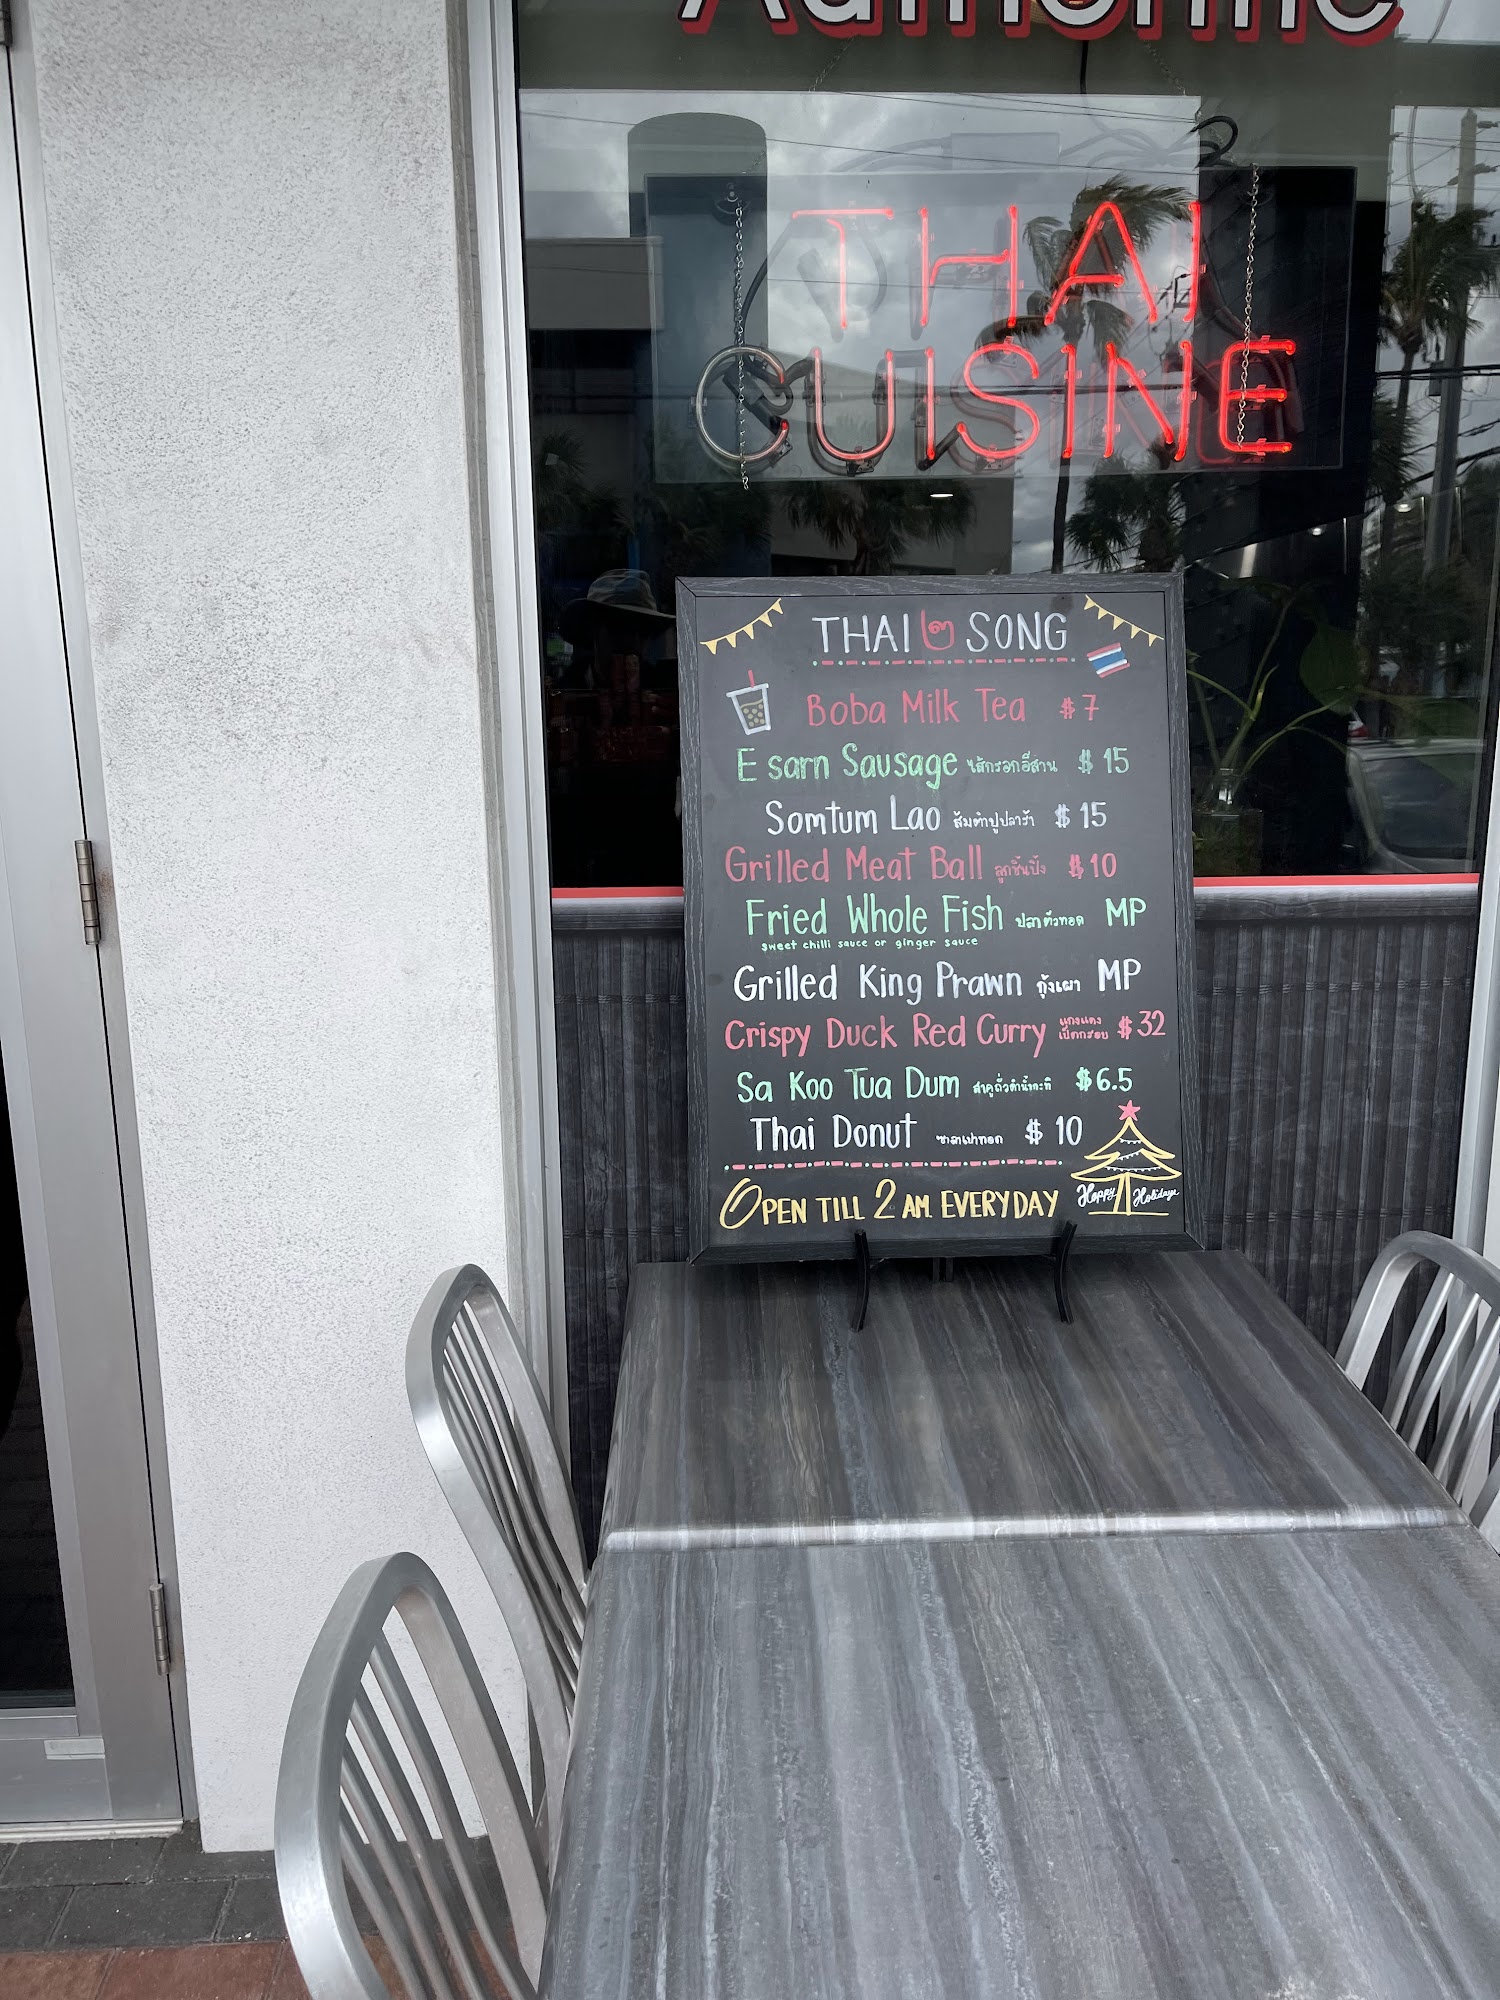 Authentic
THAI
CUISINE
THAI ๒ SONG
Boba Milk Tea $7
E sarn Sausage ไส้กรอกอีสาน $15
Somtum Lao ส้มตำปูปลาร้า $15
Grilled Meat Ball ลูกชิ้นปิ้ง $10
Fried Whole Fish ปลาตัวทอด MP
sweet chilli sauce or ginger sauce
Grilled King Prawn กุ้งเผา MP
Crispy Duck Red Curry แกงแดง เป็ดกรอบ $32
Sa Koo Tua Dum สาคูถั่วดำน้ำกะทิ $6.5
Thai Donut ซาลาเปาทอด $10
OPEN TILL 2 AM. EVERYDAY
Happy Holidays